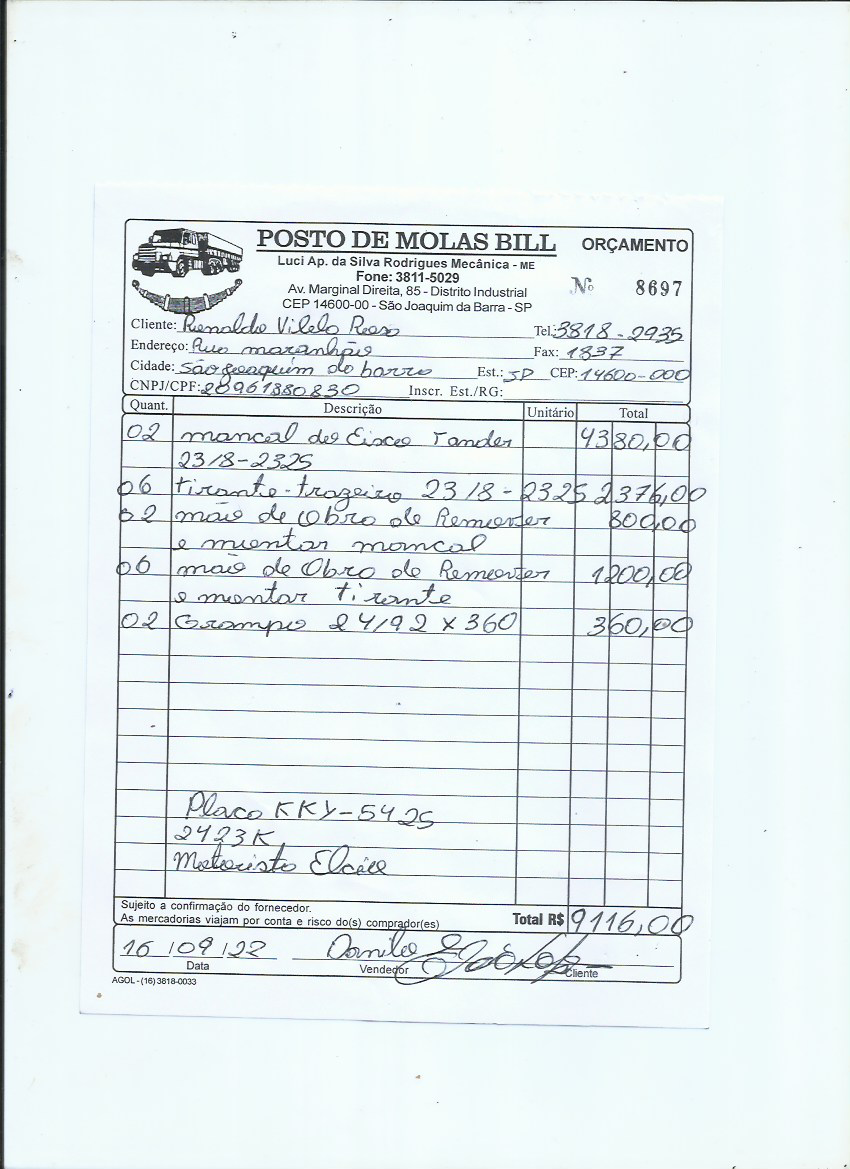 POSTO DE MOLAS BILL ORÇAMENTO
Luci Ap. da Silva Rodrigues Mecânica - ME
Fone: 3811-5029
Av. Marginal Direita, 85 - Distrito Industrial
CEP 14600-00 - São Joaquim da Barra - SP
Nº 8697
Cliente: Renaldo Vilela Tel.: 3818-2935
Endereço: Rua maranhão Fax: 1337
Cidade: São Joaquim da barra Est.: SP CEP: 14600-000
CNPJ/CPF: 28961380830 Inscr. Est./RG:
Quant. Descrição Unitário Total
02 mancal do Eixo Tander 4380,00
2318-2325
06 tirante trazeiro 2318-2325 2376,00
02 mão de Obra de Remover 800,00
e montar mancal
06 mão de Obra de Remover 1200,00
e montar tirante
02 Grampo 24/92 x 360 360,00
Placa KKY-5425
2423K
Motorista
Sujeito a confirmação do fornecedor.
As mercadorias viajam por conta e risco do(s) comprador(es)
Total R$ 9116,00
16/09/22 Danilo
Data Vendedor Cliente
AGOL - (16) 3818-0033